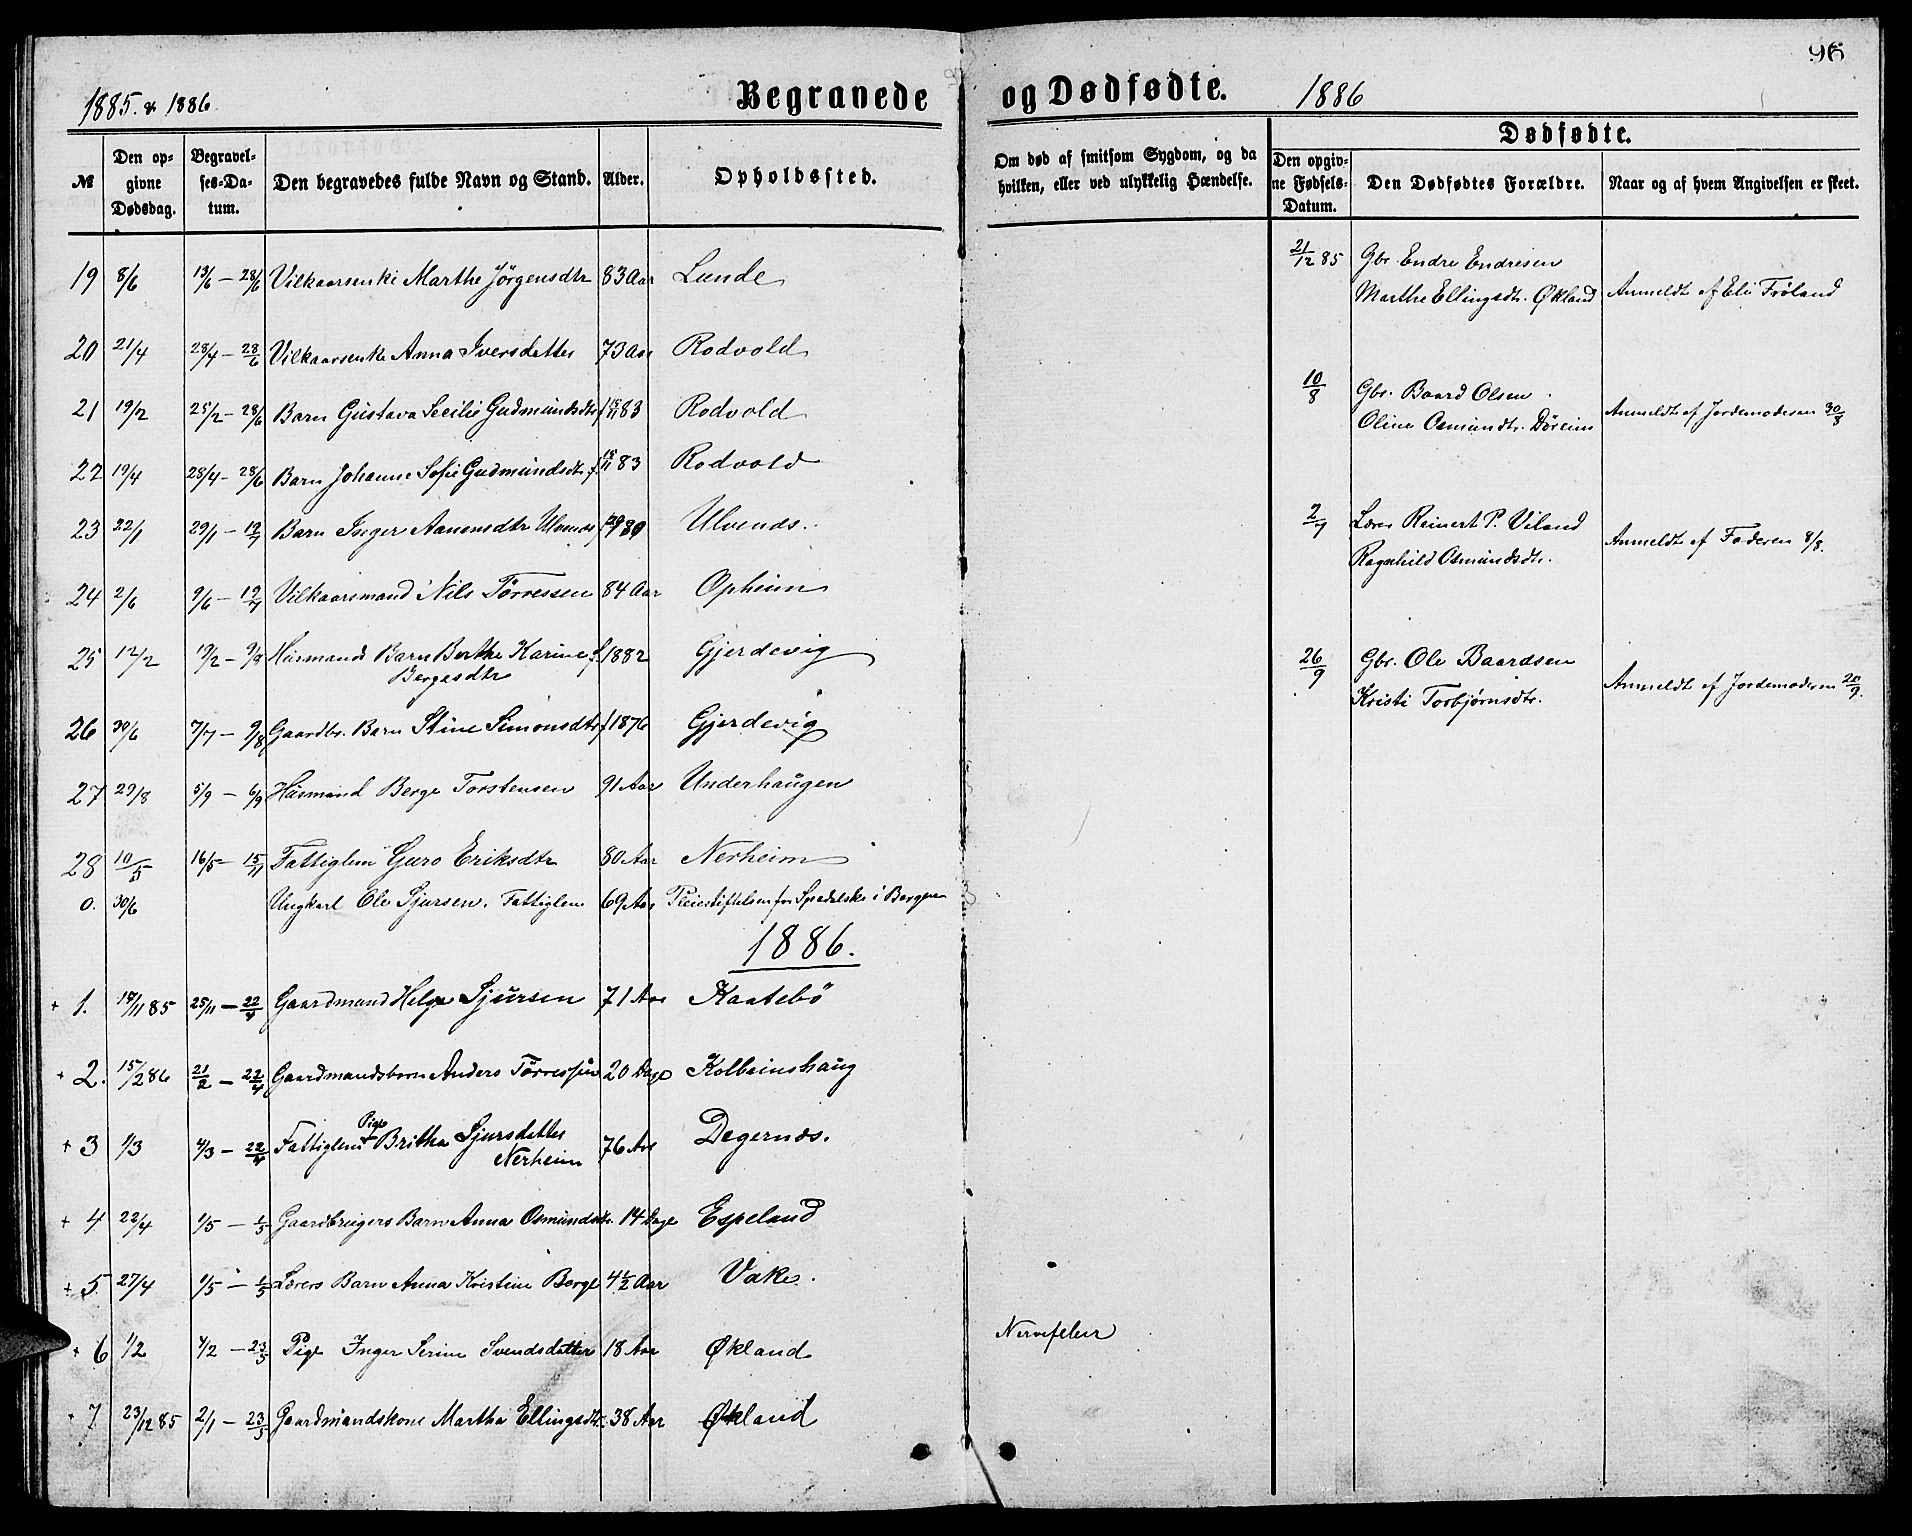 1885 & 1886
Begravede
№
Den opgivne Dødsdag.
Begravelses-Datum.
Den begravedes fulde Navn og Stand.
Alder.
Opholdssted.
19 8/6 13/6 – 28/6 Vilkaarsenke Marthe Jørgensdtr 83 Aar Lunde
20 21/4 28/4 – 28/6 Vilkaarsenke Anna Iversdatter 73 Aar Rodvold
21 19/2 25/2 – 28/6 Barn Gustava Secilie Gudmundsdtr 83 Rodvold
22 19/4 28/4 – 28/6 Barn Johanne Sofie Gudmundsdtr f. 18/11 83 Rodvold
23 22/1 29/1 – 12/7 Barn Inger Aanensdtr Ulvenes Ulvenes.
24 2/6 9/6 – 12/7 Vilkaarsmand Nils Tørressen 84 Aar Opheim
25 12/2 19/2 – 9/8 Husmands Barn Berthe Karine f. 1882 Gjerdevig
Bergesdtr
26 30/6 7/7 – 9/8 Gaardbr. Barn Stine Simonsdtr f 1876 Gjerdevig
27 29/8 5/9 – 6/9 Husmand Berge Torstensen 91 Aar Underhaugen
28 10/5 16/5 – 15/11 Fattiglem Guro Eriksdtr 80 Aar Nerheim
0. 30/6 Ungkarl Ole Sjursen. Fattiglem 69 Aar Pleiestiftelsen for Spedalske i Bergen
1886.
+ 1. 18/11 85 25/11 – 22/4 Gaardmand Helge Sjursen 71 Aar Kaatebø
+ 2. 15/2 86 21/2 – 22/4 Gaardmandsbarn Anders Tørressen 20 Dage Kolbeinshaug
Pige
+ 3 1/3 4/3 – 22/4 Fattiglem Britha Sjursdatter 76 Aar Degernes.
Nerheim
+ 4 22/4 1/5 – 1/5 Gaardbrugers Barn Anna Osmundsdtr. 14 Dage Espeland
+ 5 27/4 1/5 – 1/5 Lærers Barn Anna Kristine Berge 4½ Aar Vake.
+ 6 1/2 4/2 – 23/5 Pige Inger Serine Svendsdatter 18 Aar Økland
+ 7 23/12 85 2/1 – 23/5 Gaardmandskone Martha Ellingsdtr. 38 Aar Økland
96
og Dødfødte. 1886
Om død af smitsom Sygdom, og da
hvilken, eller ved ulykkelig Hændelse.
Dødfødte.
Den opgivne Fødsels-Datum.
Den Dødfødtes Forældre.
Naar og af hvem Angivelsen er skeet.
21/12 85 Gbr. Endre Endresen
Marthe Ellingsdtr. Økland Anmeldt af Eli Frøland
10/8 Gbr. Baard Olsen
Oline Osmundtr. Døreim Anmeldt af Jordemoderen 30/8
2/7 Lærer Reinert P. Viland
Ragnhild Osmundsdtr. Anmeldt af Faderen 8/8.
26/9 Gbr. Ole Baardsen
Kristi Torbjørnsdtr. Anmeldt af Jordemoderen
Nervefeber